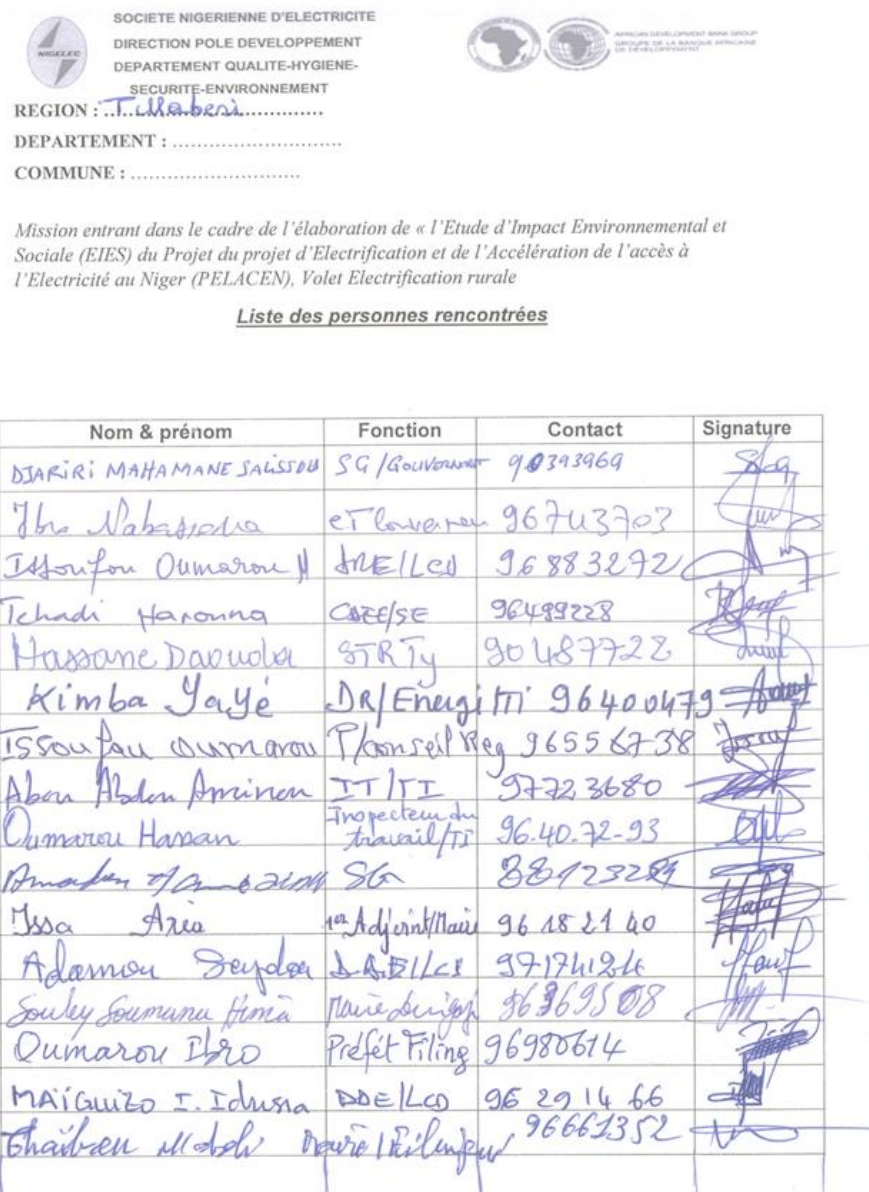 SOCIETE NIGERIENNE D'ELECTRICITE
DIRECTION POLE DEVELOPPEMENT
DEPARTEMENT QUALITE-HYGIENE-
SECURITE-ENVIRONNEMENT
NIGELEC
AFRICAN DEVELOPMENT BANK GROUP
GROUPE DE LA BANQUE AFRICAINE
DE DEVELOPPEMENT
REGION : Tillaberi
DEPARTEMENT : ...........................
COMMUNE : ...........................
Mission entrant dans le cadre de l'élaboration de « l'Etude d'Impact Environnemental et
Sociale (EIES) du Projet du projet d'Electrification et de l'Accélération de l'accès à
l'Electricité au Niger (PELACEN), Volet Electrification rurale
Liste des personnes rencontrées
Nom & prénom Fonction Contact Signature
DJARIRI MAHAMANE SALISSOU SG/Gouvernorat 90393969
Ibro 96743703
Issoufou Oumarou 96883272
Tchadi Harouna 96499228
Hassane Daouda STR Ty 90487728
Kimba Yayé DR/Energi/Ti 96400479
Issoufou Oumarou P/conseil Reg 96556738
Abou Abdou Aminou IT/TI 97723680
Oumarou Hassan Inspecteur du
travail/TI 96.40.72-93
SG
Issa 1er Adjoint/Maire 96 18 21 40
Adamou Seydou 97174124
Souley Soumana Hima Maire
Oumarou Ibro Préfet Filing 96980614
MAÏGUIZO I. Idrissa DDE/LCD 96 29 14 66
96661352